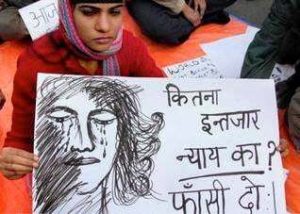 आज
कितना
इन्तजार
न्याय का?
फाँसी दो।